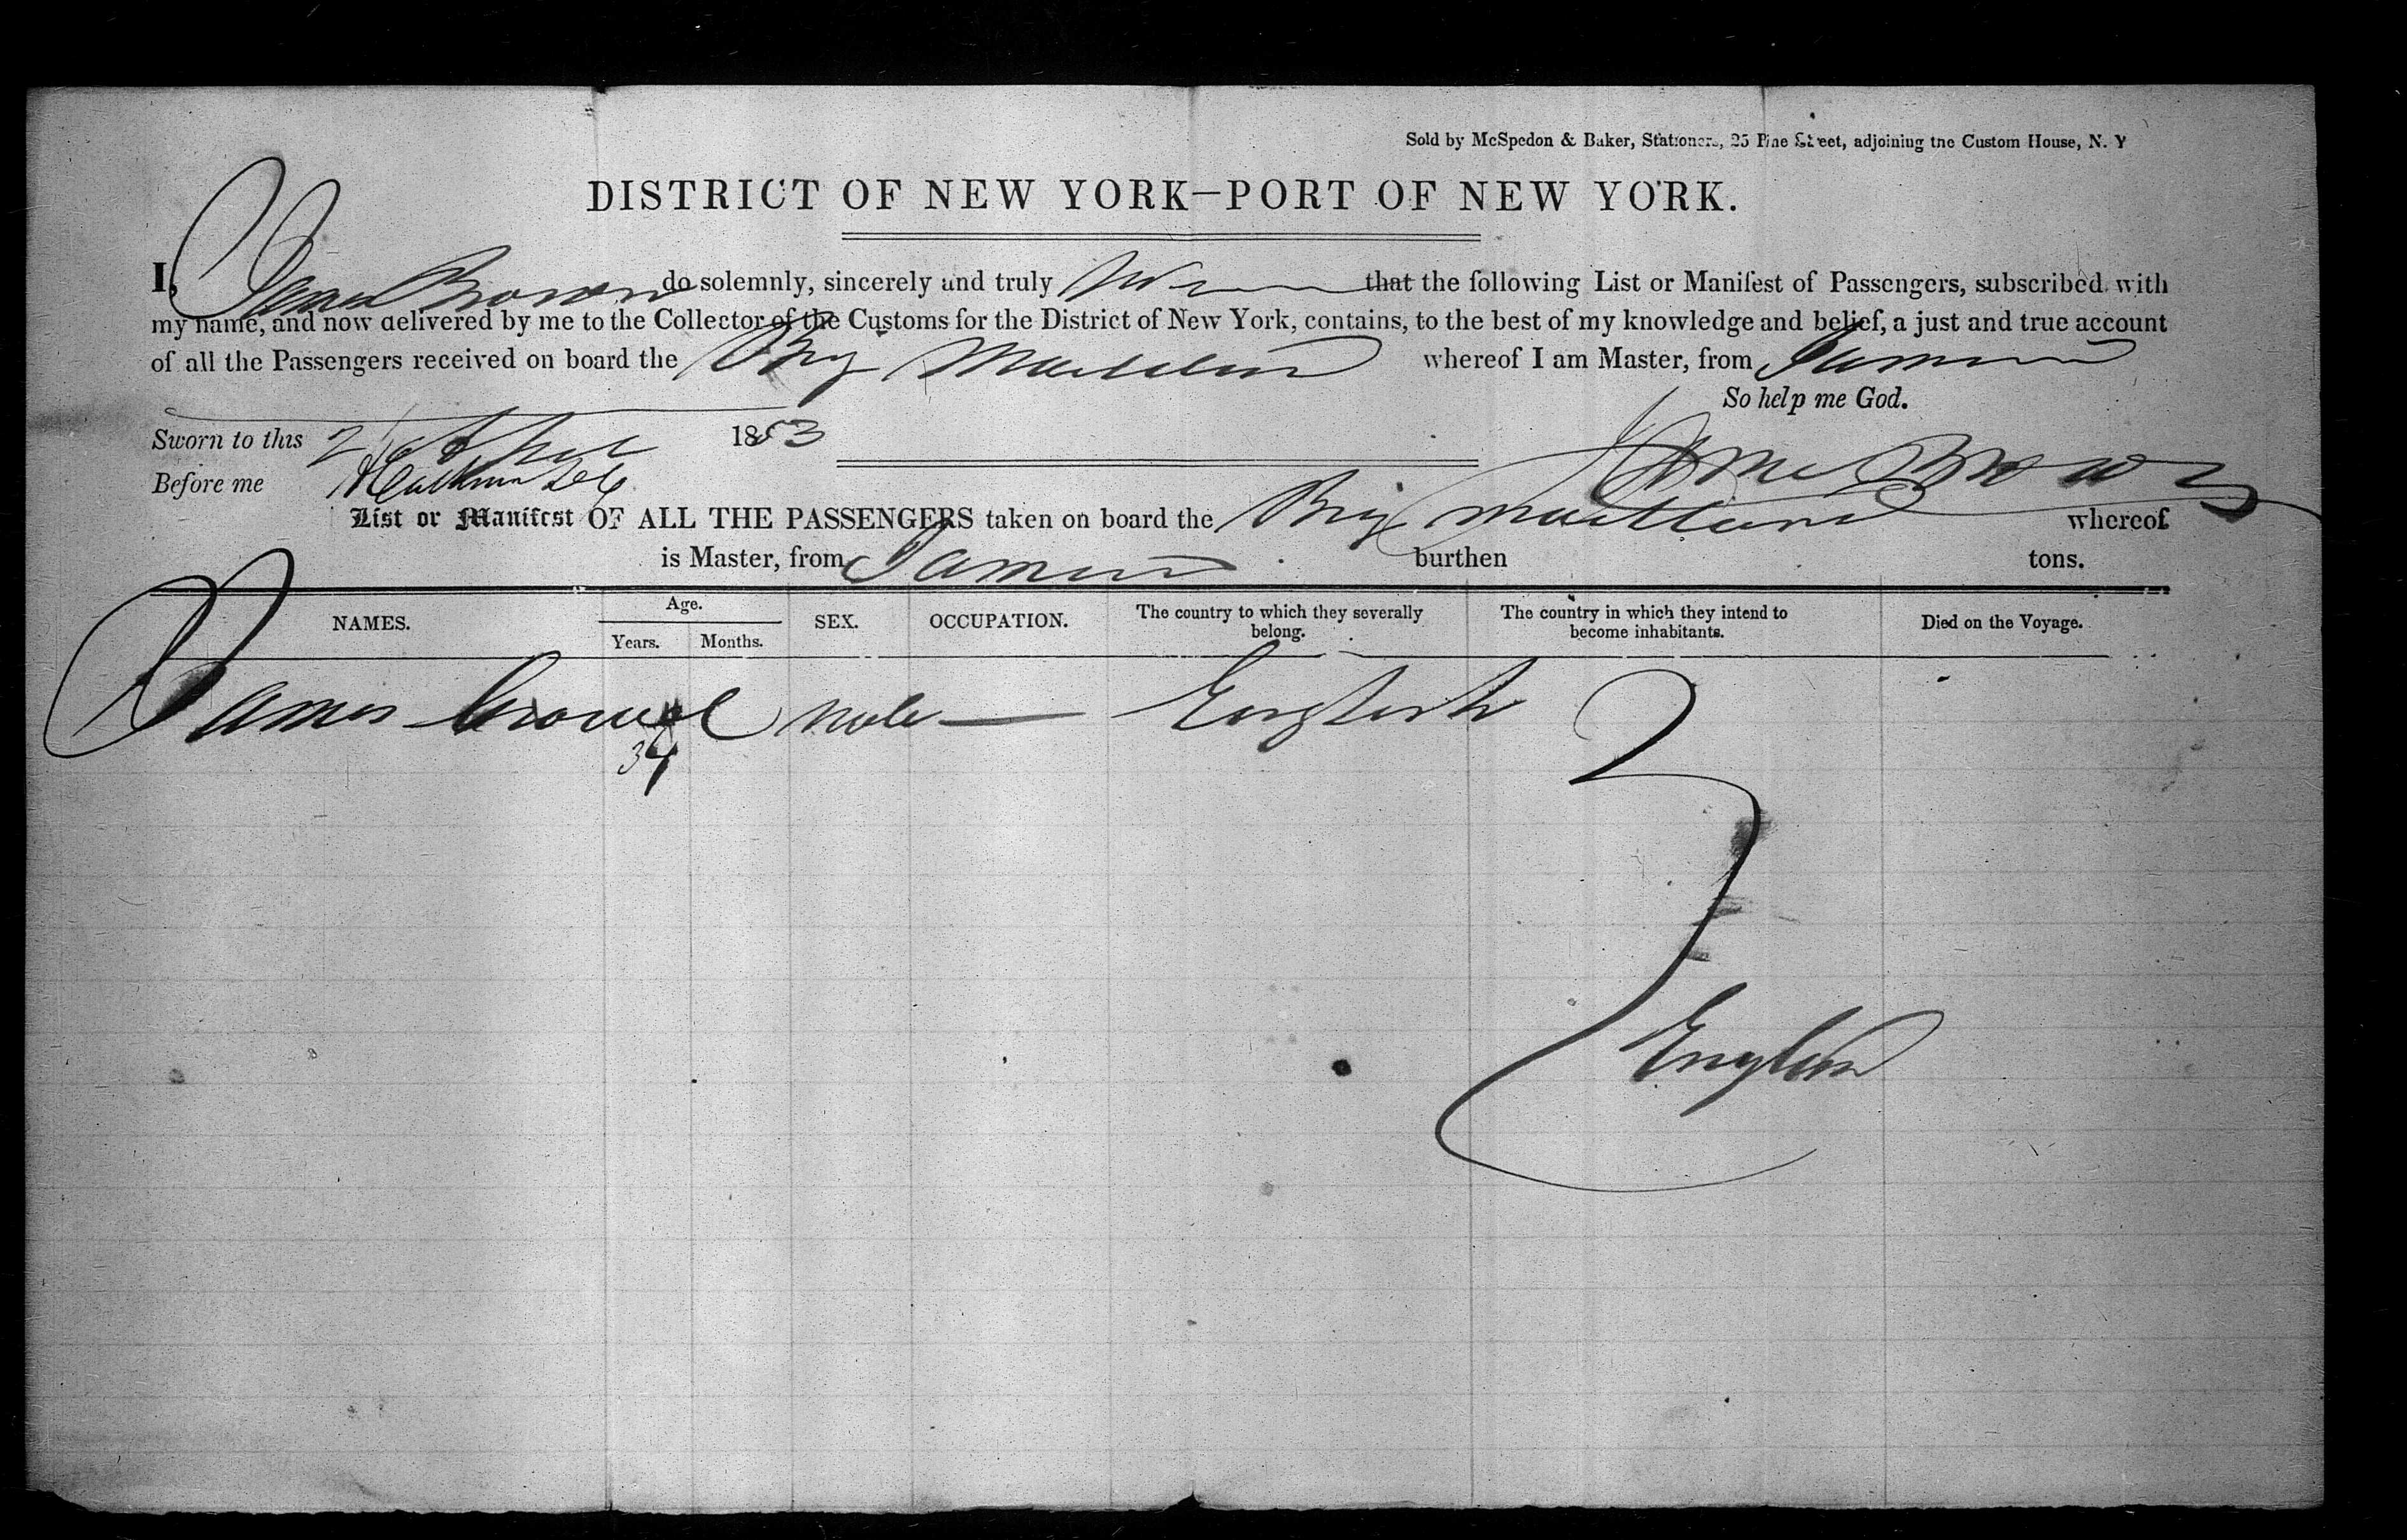 Sold by McSpedon & Baker, Stationers, 25 Pine Street, adjoining the Custom House, N. Y
DISTRICT OF NEW YORK—PORT OF NEW YORK.
I, James Brown do solemnly, sincerely and truly that the following List or Manifest of Passengers, subscribed with
my name, and now delivered by me to the Collector of the Customs for the District of New York, contains, to the best of my knowledge and belief, a just and true account
of all the Passengers received on board the Brig whereof I am Master, from
So help me God.
Sworn to this 1853
Before me
James Brown
List or Manifest OF ALL THE PASSENGERS taken on board the Brig Maitland whereof
is Master, from burthen tons.
NAMES. Age. Years. Months. SEX. OCCUPATION. The country to which they severally belong. The country in which they intend to become inhabitants. Died on the Voyage.
James male — English
34
England